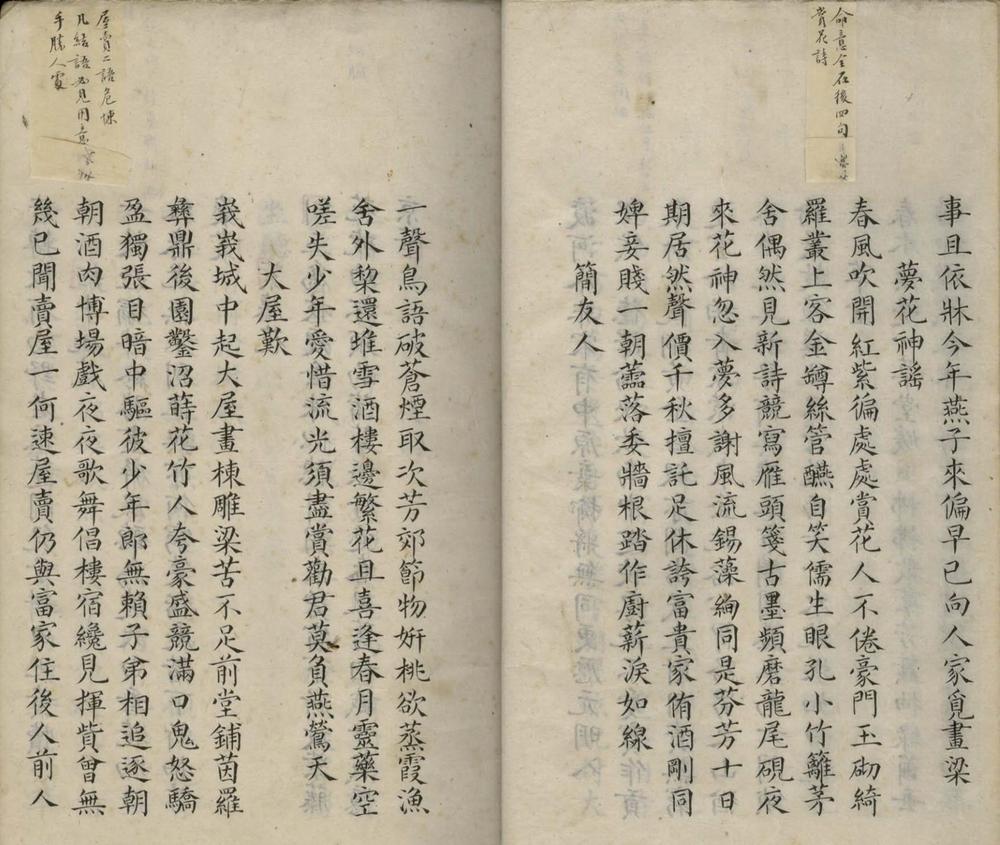 命意全在後四句
賞花詩
事且依牀今年燕子來偏早已向人家覓畫梁
夢花神謠
春風吹開紅紫徧處處賞花人不倦豪門玉砌綺
羅叢上客金罇絲管醼自笑儒生眼孔小竹籬茅
舍偶然見新詩競寫雁頭箋古墨頻磨龍尾硯夜
來花神忽入夢多謝風流錫藻絢同是芬芳十日
期居然聲價千秋擅託足休誇富貴家侑酒剛同
婢妾賤一朝蘦落委牆根踏作廚薪淚如線
簡友人
一聲鳥語破蒼煙取次芳郊節物妍桃欲蒸霞漁
舍外棃還堆雪酒樓邊繁花且喜逢春月靈藥空
嗟失少年愛惜流光須盡賞勸君莫負燕鶯天
大屋歎
峩峩城中起大屋畫棟雕梁苦不足前堂鋪茵羅
彝鼎後園鑿沼蒔花竹人夸豪盛競滿口鬼怒驕
盈獨張目暗中驅彼少年郎無賴子弟相追逐朝
朝酒肉博場戲夜夜歌舞倡樓宿纔見揮貲曾無
幾已聞賣屋一何速屋賣仍與富家住後人前人
屋賣二語危悚
凡結語必見用意
手勝人處